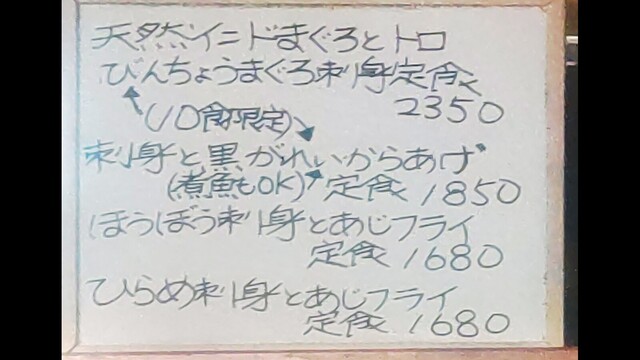 天然インドまぐろとトロ
びんちょうまぐろ刺身定食
2350
(10食限定)
刺身と黒がれいからあげ
(煮魚もOK) 定食 1850
ほうぼう刺身とあじフライ
定食 1680
ひらめ刺身とあじフライ
定食 1680